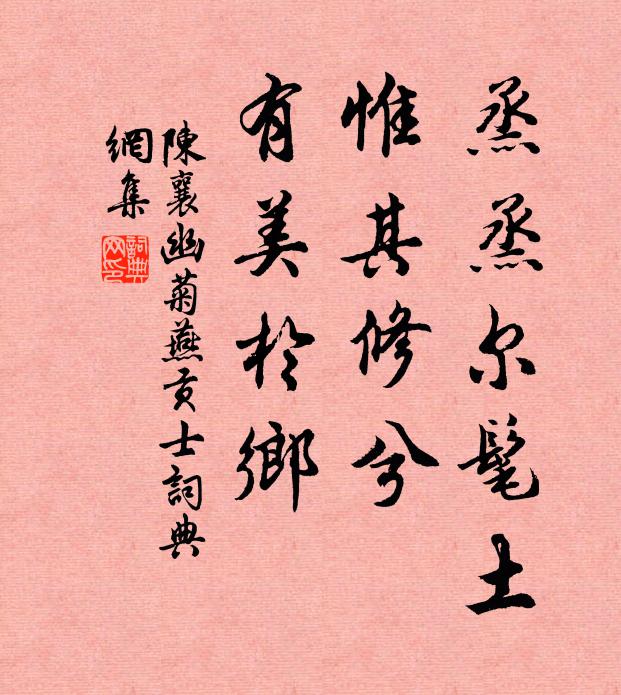 烝烝尔髦土
惟其修兮
有美於鄉
陳襄幽菊燕貢士詞典
網集
詞典
网印